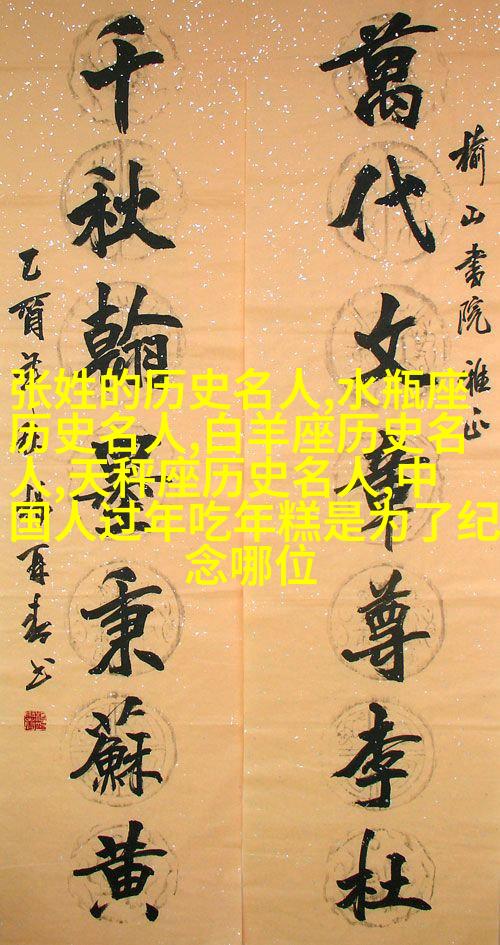 榆山書院 雅正
萬代文章尊李杜
千秋翰墨秉蘇黄
张姓的历史名人,水瓶座
历史名人,白羊座历史名
人,天秤座历史名人,中
国人过年吃年糕是为了纪
念哪位